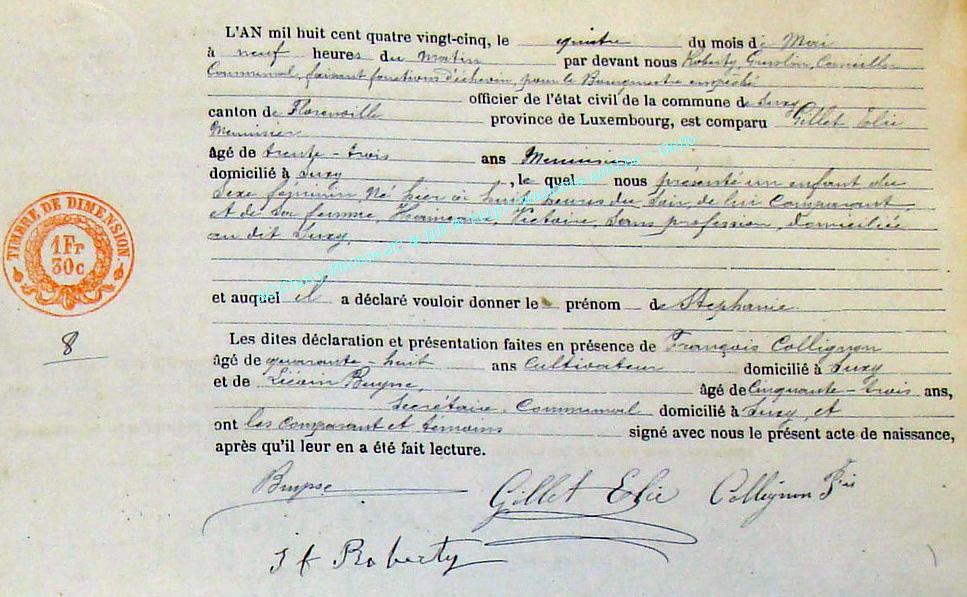 L'AN mil huit cent quatre vingt-cinq, le quinze du mois de Mai
à neuf heures du matin par devant nous Roberty, Conseiller
Communal, faisant fonctions d'échevin, pour le Bourgmestre empêché
officier de l'état civil de la commune de Suxy
canton de Florenville province de Luxembourg, est comparu Gillet Elie
Meunisier
âgé de trente-trois ans Menuisier
domicilié à Suxy, le quel nous présenté un enfant du
Sexe féminin, Né hier à huit heures du Soir, de lui Comparant
et de Sa femme, Victoire, Sans profession, domiciliée
au dit Suxy,
TIMBRE DE DIMENSION.
1 Fr
30c
et auquel il a déclaré vouloir donner le prénom de Stephanie
8
Les dites déclaration et présentation faites en présence de François Collignon
âgé de quarante-huit ans Cultivateur domicilié à Suxy
et de âgé de Cinquante-trois ans,
Secrétaire Communal domicilié à Suxy, et
ont les Comparant et témoins signé avec nous le présent acte de naissance,
après qu'il leur en a été fait lecture.
Gillet Elie Collignon Fois
J f Roberty